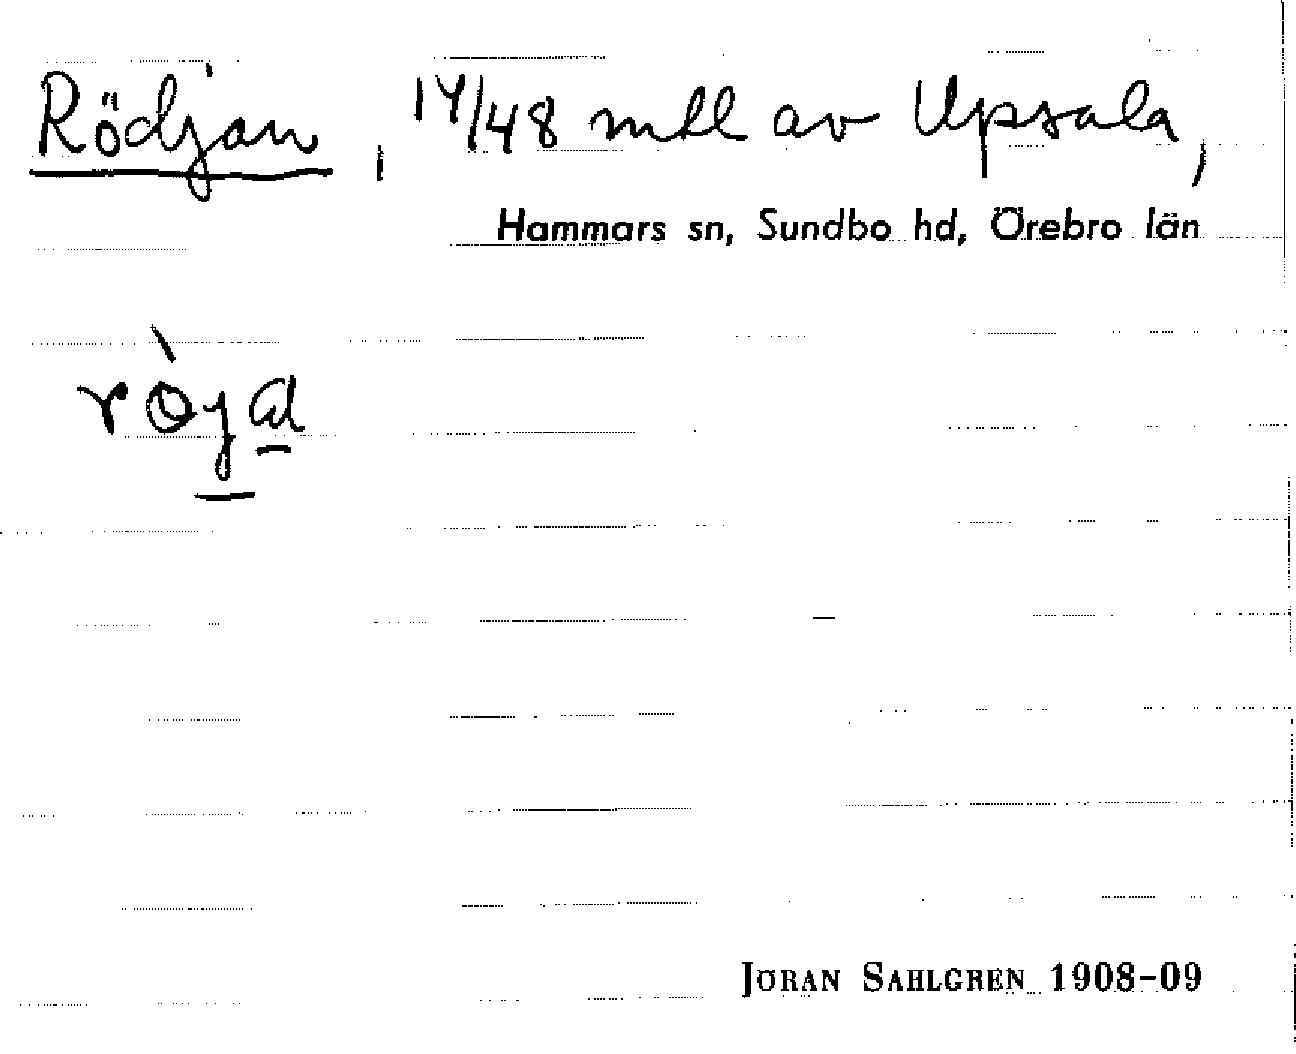 Rödjan, 14/48 mtl av Upsala,
Hammars sn, Sundbo hd, Örebro län
JÖRAN SAHLGREN 1908-09